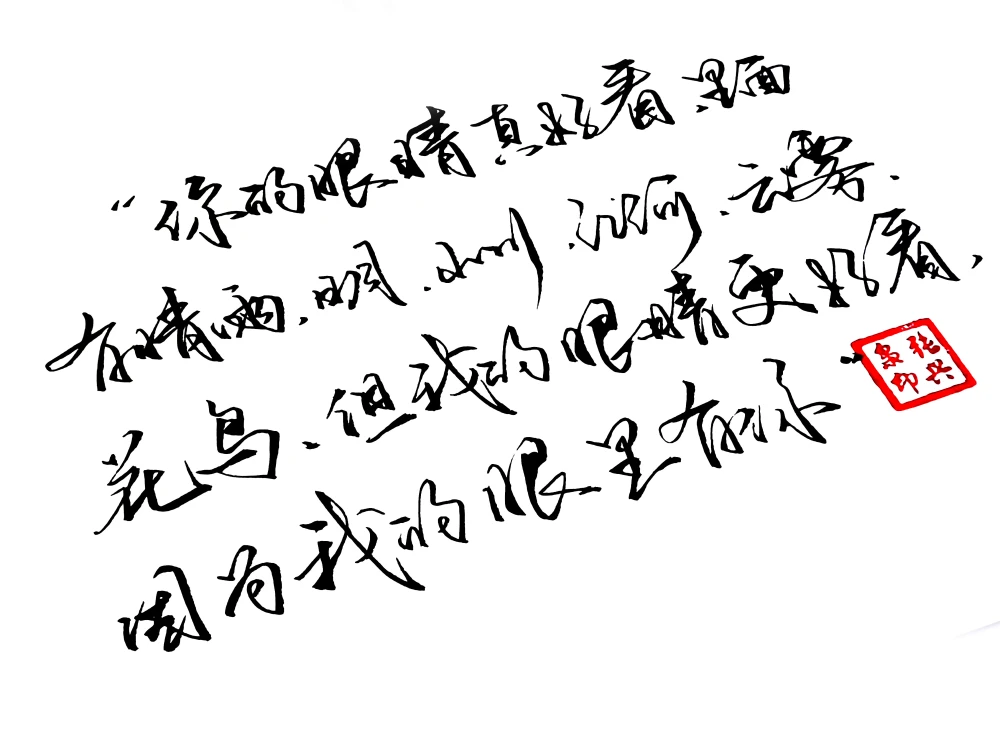 “你的眼睛真好看里面
有晴雨.日月.山川.江河.云雾.
花鸟.但我的眼睛更好看,
因为我的眼里有你”
张兴
印